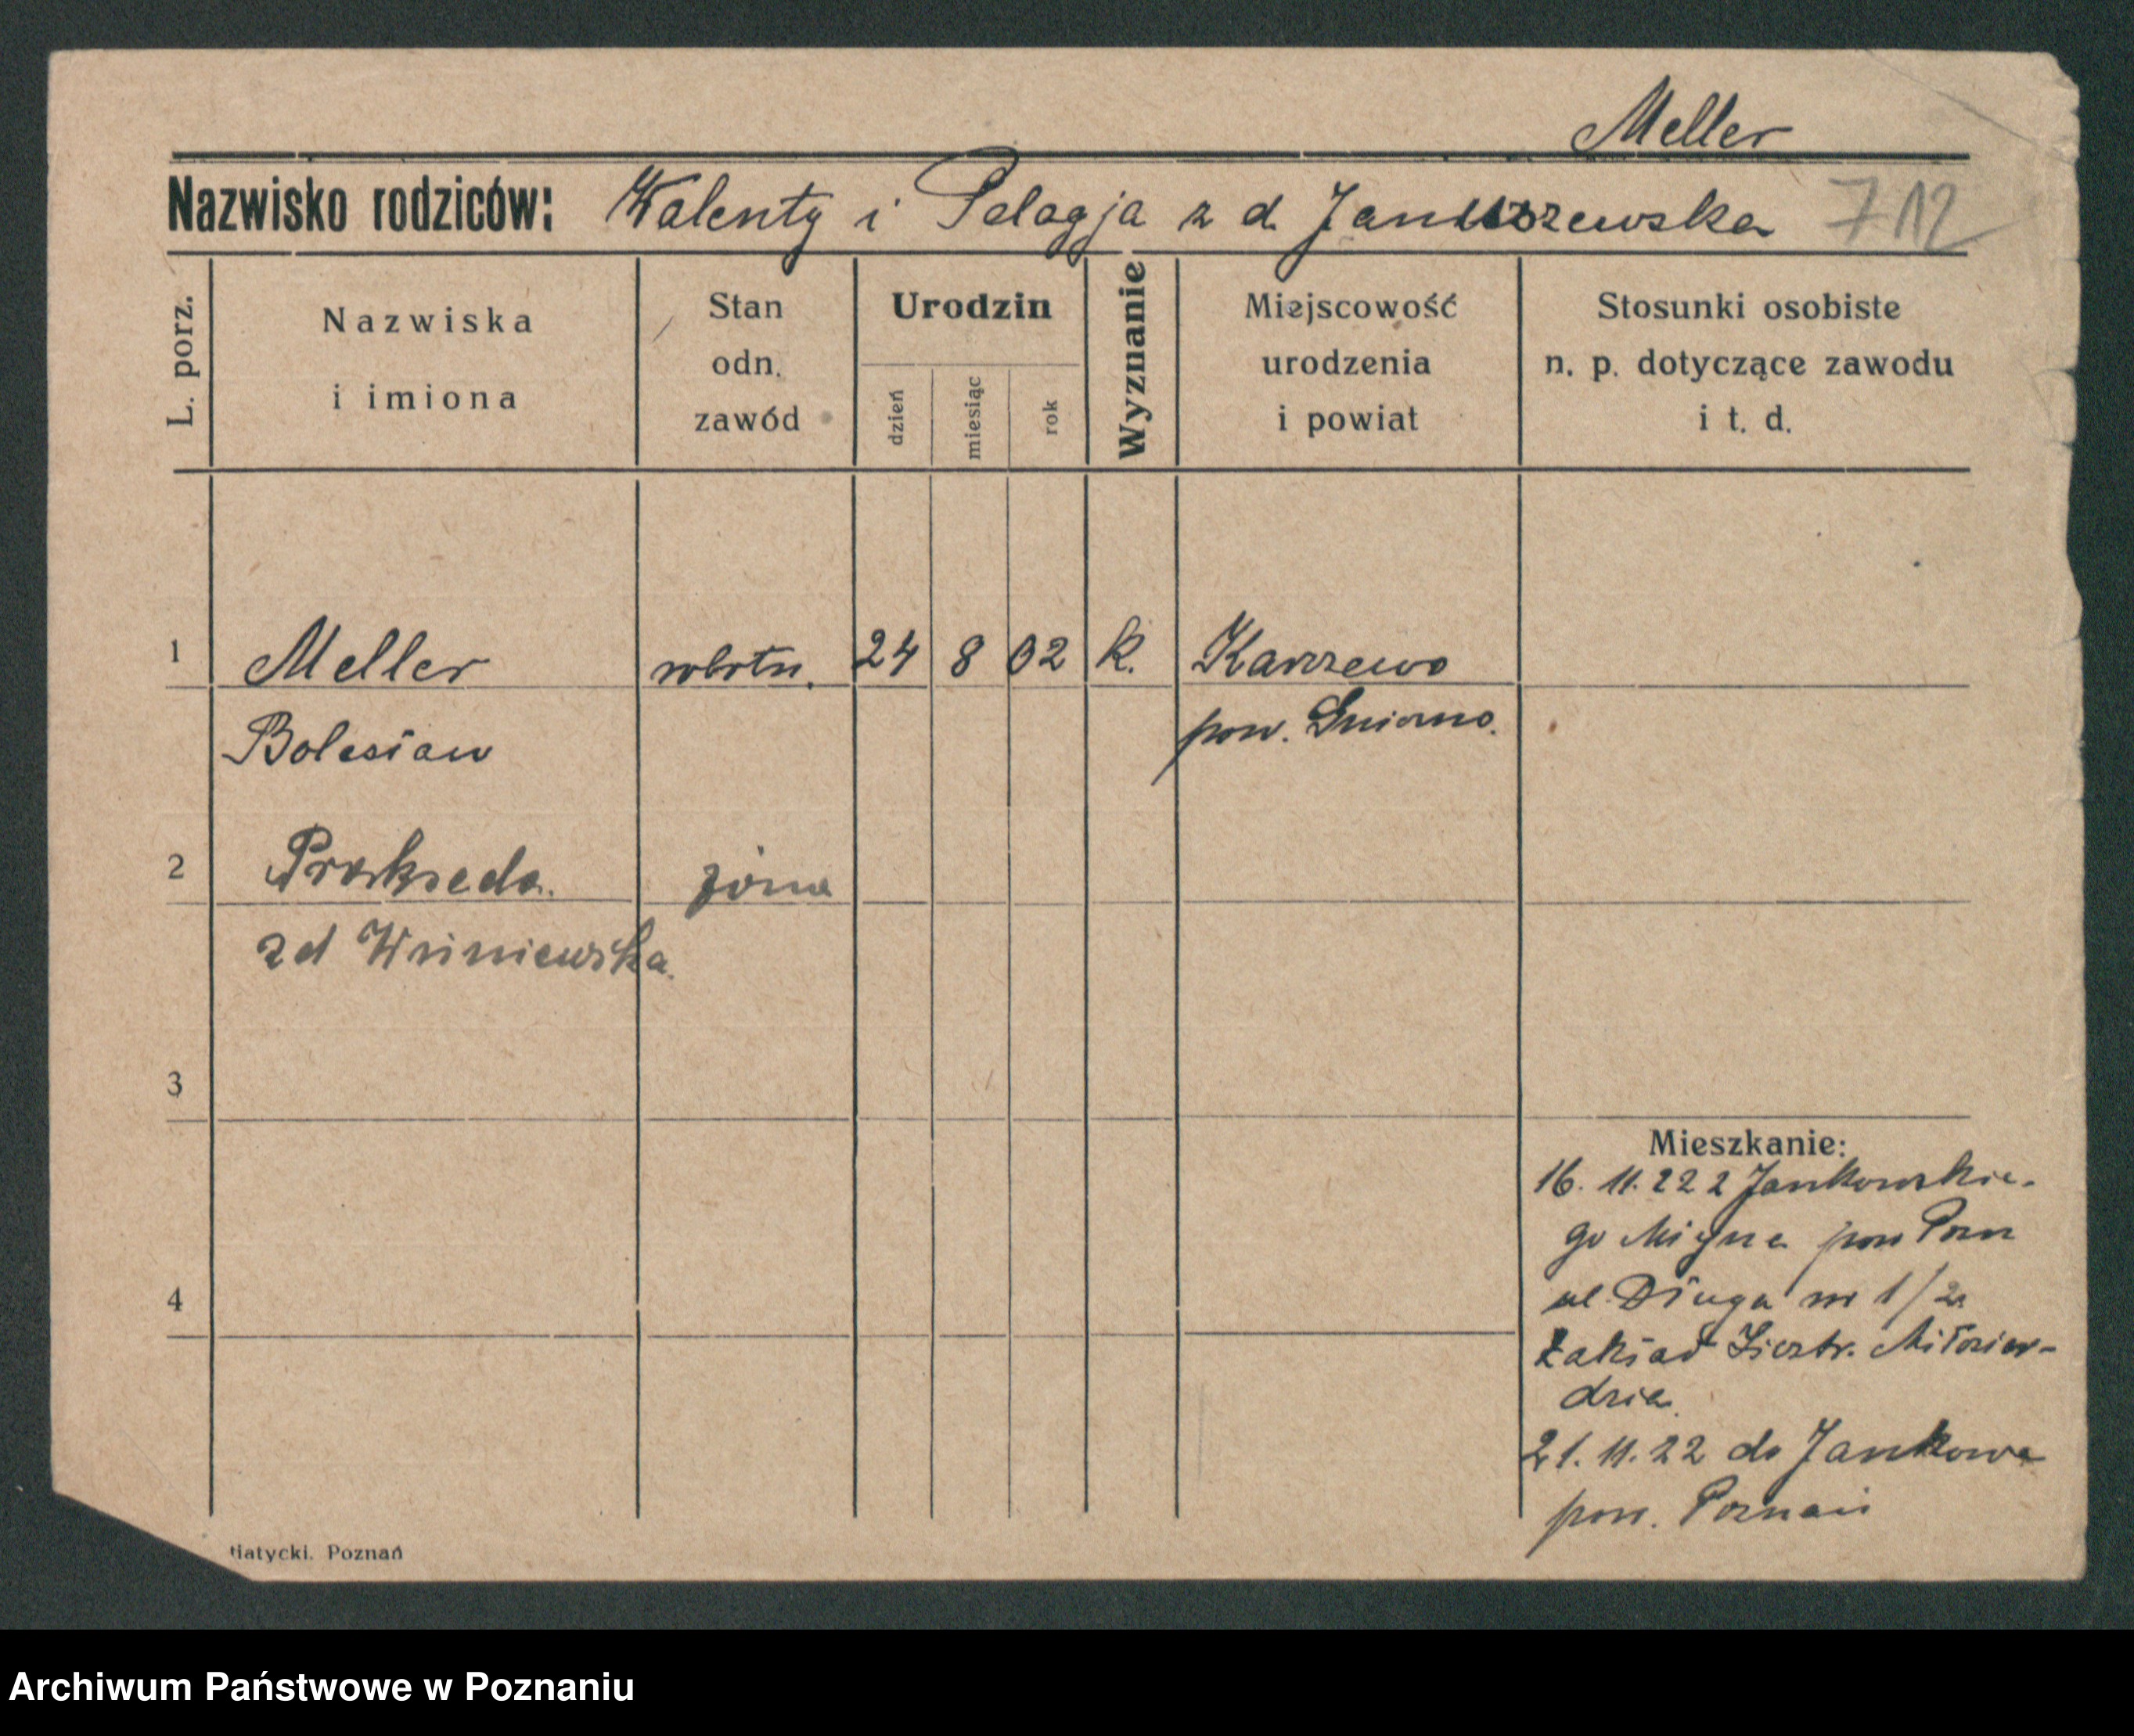 Meller
Nazwisko rodziców: Walenty i Pelagja z d. Januszewska 712
L. porz.
Nazwiska
i imiona
Stan
odn.
zawód
Urodzin
dzień
miesiąc
rok
Wyznanie
Miejscowość
urodzenia
i powiat
Stosunki osobiste
n. p. dotyczące zawodu
i t. d.
1 Meller robotn. 24 8 02 k. Karczewo
Bolesław pow. Gniezno.
2 Prakseda. żona
zd Wiśniewska.
3
Mieszkanie:
16. 11. 22 z Jankowskie-
go Młyna pow Pozn
ul Długa nr 1/2
4
Zakład Siostr. Miłosier-
dzia.
21. 11. 22 do Jankowa
pow. Poznań
tiatycki. Poznań
Archiwum Państwowe w Poznaniu